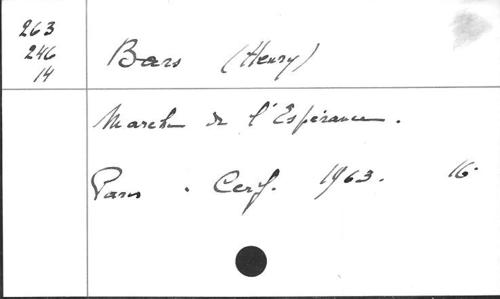 263
246
14
Bars (Henry)
Marche de l'Espérance.
Paris. Cerf. 1963. 16.